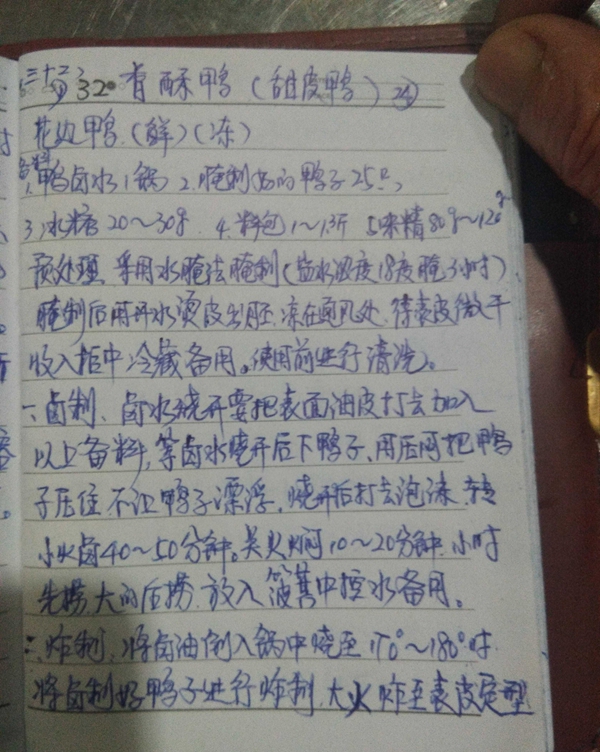 三十三 32° 香酥鸭 (甜皮鸭) 24
花边鸭.(鲜)(冻)
备料
1.鸭卤水1锅 2.腌制好的鸭子25只,
3)冰糖20～30g. 4.料包1～1.3斤 5.味精80g～120g
预处理 采用水腌法腌制(盐水浓度18度腌3小时)
腌制后用开水烫皮出胚.凉在通风处.待表皮微干
收入柜中冷藏备用。使用前进行清洗。
一.卤制、卤水烧开要把表面油皮打去加入
以上备料,等卤水烧开后下鸭子、用压 把鸭
子压住 不让鸭子漂浮.烧开后打去泡沫.转
小火卤40～50分钟。关火焖10～20分钟.小时
先捞大的后捞.放入 中控水备用。
二.炸制、将卤油倒入锅中烧至170°～180°时.
将卤制好鸭子进行炸制.大火炸至表皮定型